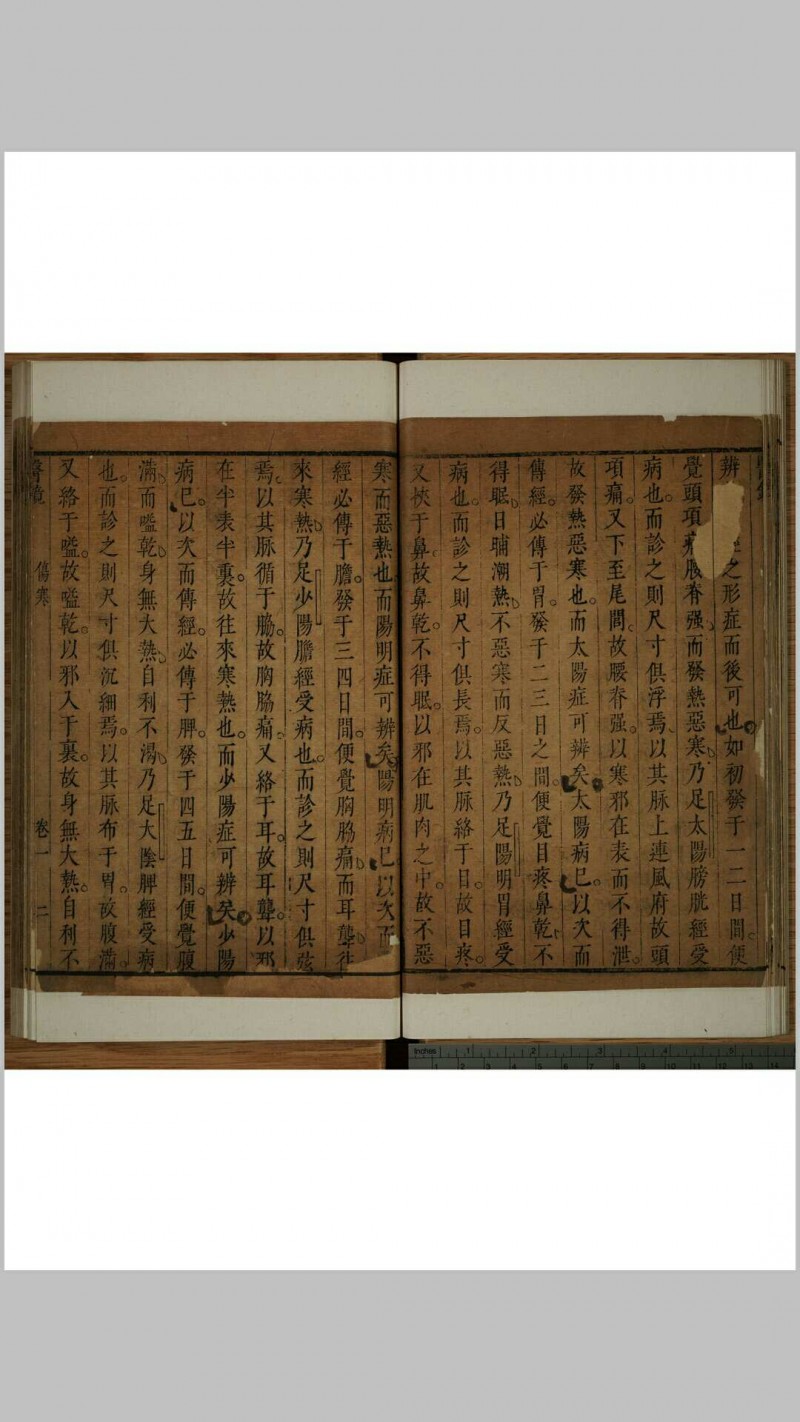 辨之形症而後可也如初發于一二日間便
覺頭項痛腰脊强而發熱惡寒乃足太陽膀胱經受
病也而診之則尺寸俱浮焉以其脉上連風府故頭
項痛又下至尾閭故腰脊强以寒邪在表而不得泄
故發熱惡寒也而太陽症可辨矣太陽病已以次而
傳經必傳于胃發于二三日之間便覺目疼鼻乾不
得眠日晡潮熱不惡寒而反惡熱乃足陽明胃經受
病也而診之則尺寸俱長焉以其脉絡于目故目疼
又挾于鼻故鼻乾不得眠以邪在肌肉之中故不惡
寒而惡熱也而陽明症可辨矣陽明病已以次而
經必傳于膽發于三四日間便覺胸脇痛而耳聾往
來寒熱乃足少陽膽經受病也而診之則尺寸俱弦
焉以其脉循于脇故胸脇痛又絡于耳故耳聾以邪
在半表半裏故往來寒熱也而少陽症可辨矣少陽
病已以次而傳經必傳于脾發于四五日間便覺腹
滿而嗌乾身無大熱自利不渴乃足太陰脾經受病
也而診之則尺寸俱沉細焉以其脉布于胃故腹滿
又絡于嗌故嗌乾以邪入于裏故身無大熱自利不
醫鏡 傷寒 卷一 二